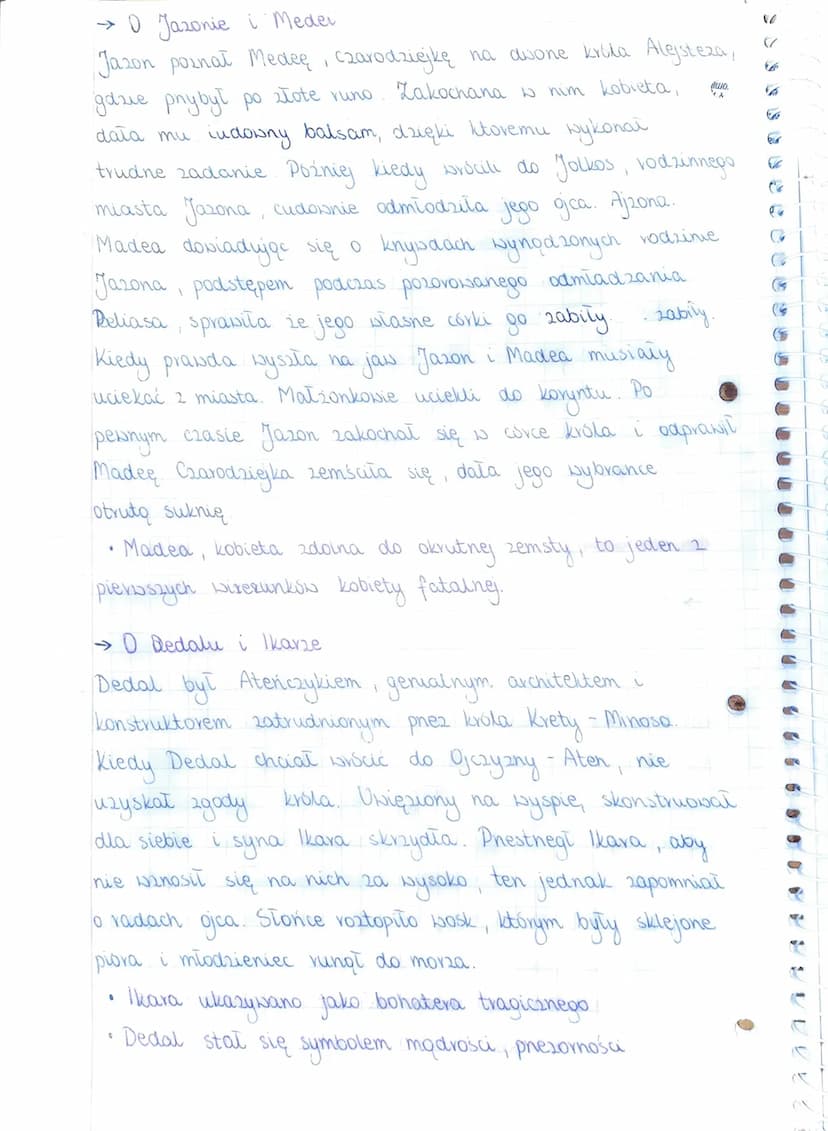 → O Jazonie i Medei
Jazon poznał Medeę, czarodziejkę na dworze króla Alejsteza,
gdzie przybył po złote runo. Zakochana w nim kobieta,
dała mu cudowny balsam, dzięki któremu wykonał
trudne zadanie. Później kiedy wrócili do Jolkos, rodzinnego
miasta Jazona, cudownie odmłodziła jego ojca. Ajzona.
Madea dowiadując się o krzywdach wyrządzonych rodzinie
Jazona, podstępem podczas pozorowanego odmładzania
Peliasa, sprawiła że jego własne córki go zabiły. zabiły.
Kiedy prawda wyszła na jaw Jazon i Madea musiały
uciekać z miasta. Małżonkowie uciekli do koryntu. Po
pewnym czasie Jazon zakochał się w córce króla i odprawił
Madeę Czarodziejka zemściła się, dała jego wybrance
otrutą suknię
• Madea, kobieta zdolna do okrutnej zemsty, to jeden z
pierwszych wizerunków kobiety fatalnej.
→ O Dedalu i Ikarze
Dedal był Ateńczykiem, genialnym architektem i
konstruktorem zatrudnionym przez króla Krety - Minosa.
Kiedy Dedal chciał wrócić do Ojczyzny - Aten, nie
uzyskał zgody króla. Uwięziony na wyspie, skonstruował
dla siebie i syna Ikara skrzydła. Przestrzegł Ikara, aby
nie wznosił się na nich za wysoko, ten jednak zapomniał
o radach ojca. Słońce roztopiło wosk, którym były sklejone
pióra i młodzieniec runął do morza.
• Ikara ukazywano jako bohatera tragicznego
• Dedal stał się symbolem mądrości, przezorności